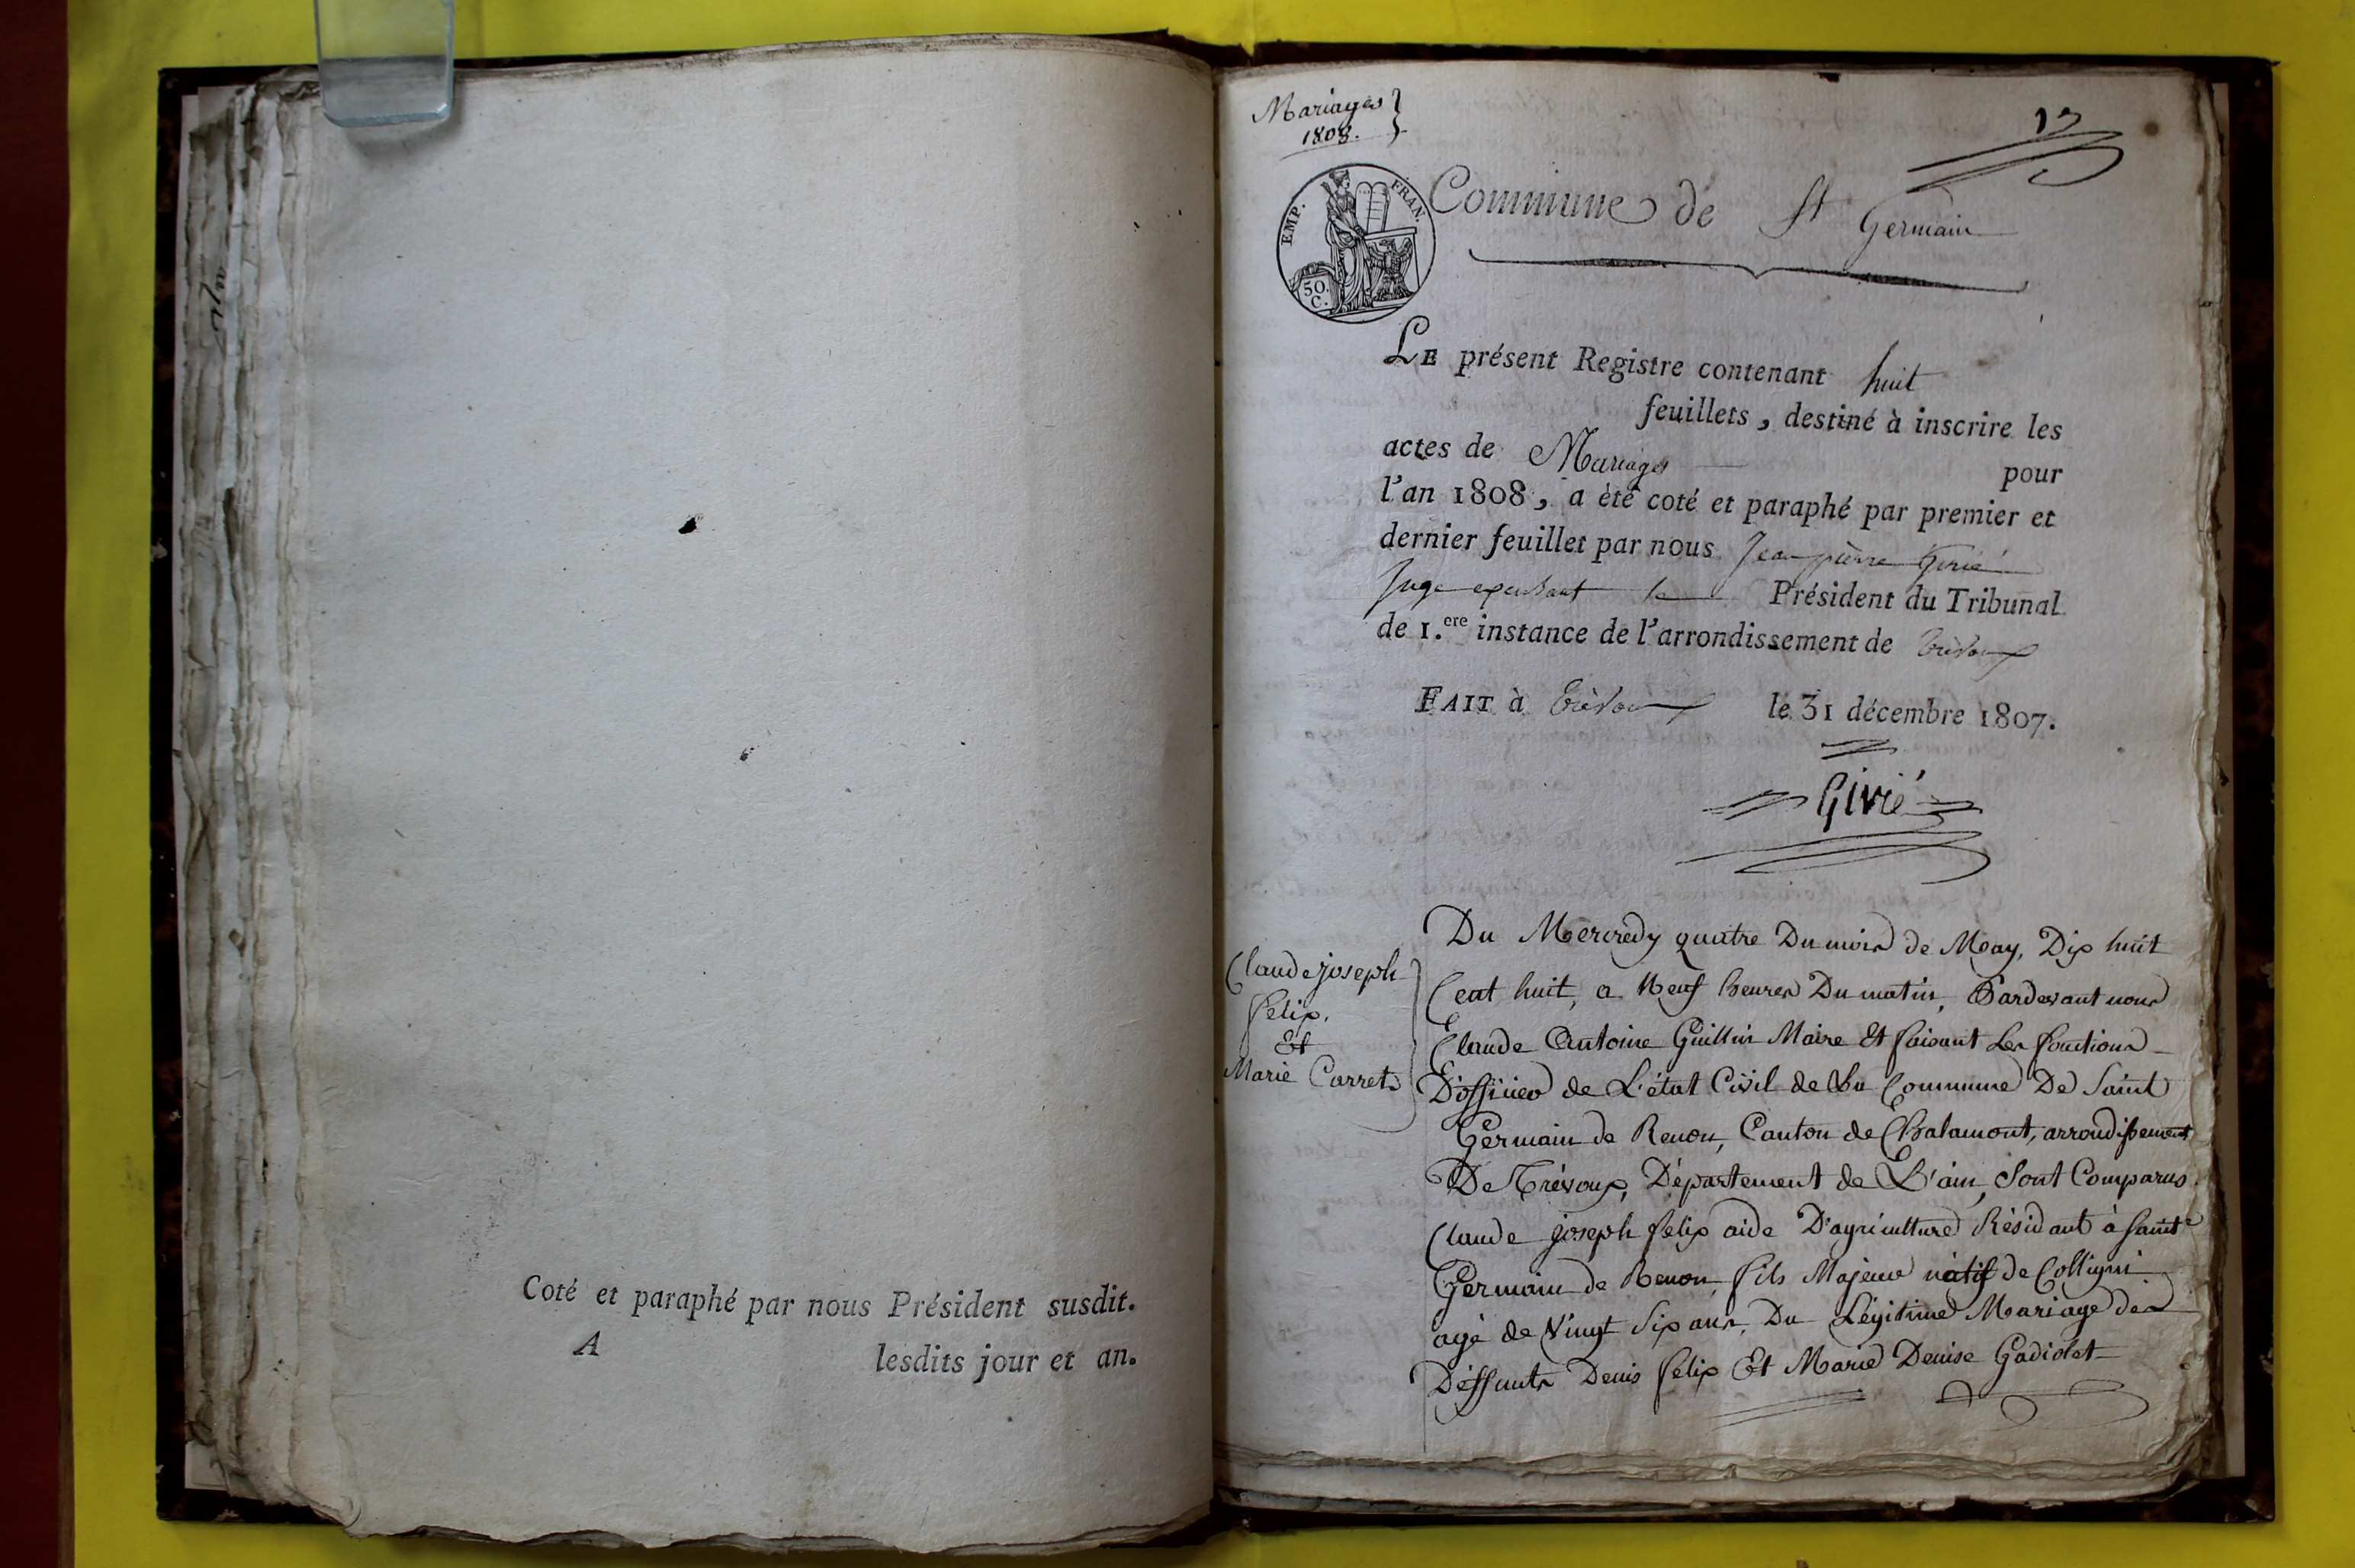 Coté et paraphé par nous Président susdit.
A lesdits jour et an.
Mariages
1808.
EMP. FRAN.
50.
C.
Commune de St Germain
LE présent Registre contenant huit
feuillets, destiné à inscrire les
actes de Mariages pour
l'an 1808, a èté coté et paraphé par premier et
dernier feuillet par nous Jean pierre Girié
Juge le Président du Tribunal
de 1.ere instance de l'arrondissement de Trévoux
FAIT à Trévoux le 31 décembre 1807.
Girié
Claude joseph
felix.
Et
Marie Carret
Du Mercredy quatre Du mois de May, Dix huit
Cent huit, a Neuf heures Du matin, Pardevant nous
Claude Antoine Guillin Maire Et faisant Les fonctions
D'officier de L'état Civil de La Commune De Saint
Germain de Renon, Canton de Chalamont, arrondissement
De Trévoux, Département de L'ain, Sont Comparus
Claude joseph felix aide D'agriculture Résidant à Saint
Germain de Renon, fils Majeur natif de Colligni
agé de Vingt Six ans, Du Légitime Mariage des
Deffunts Denis felix Et Marie Denise Gadiolet